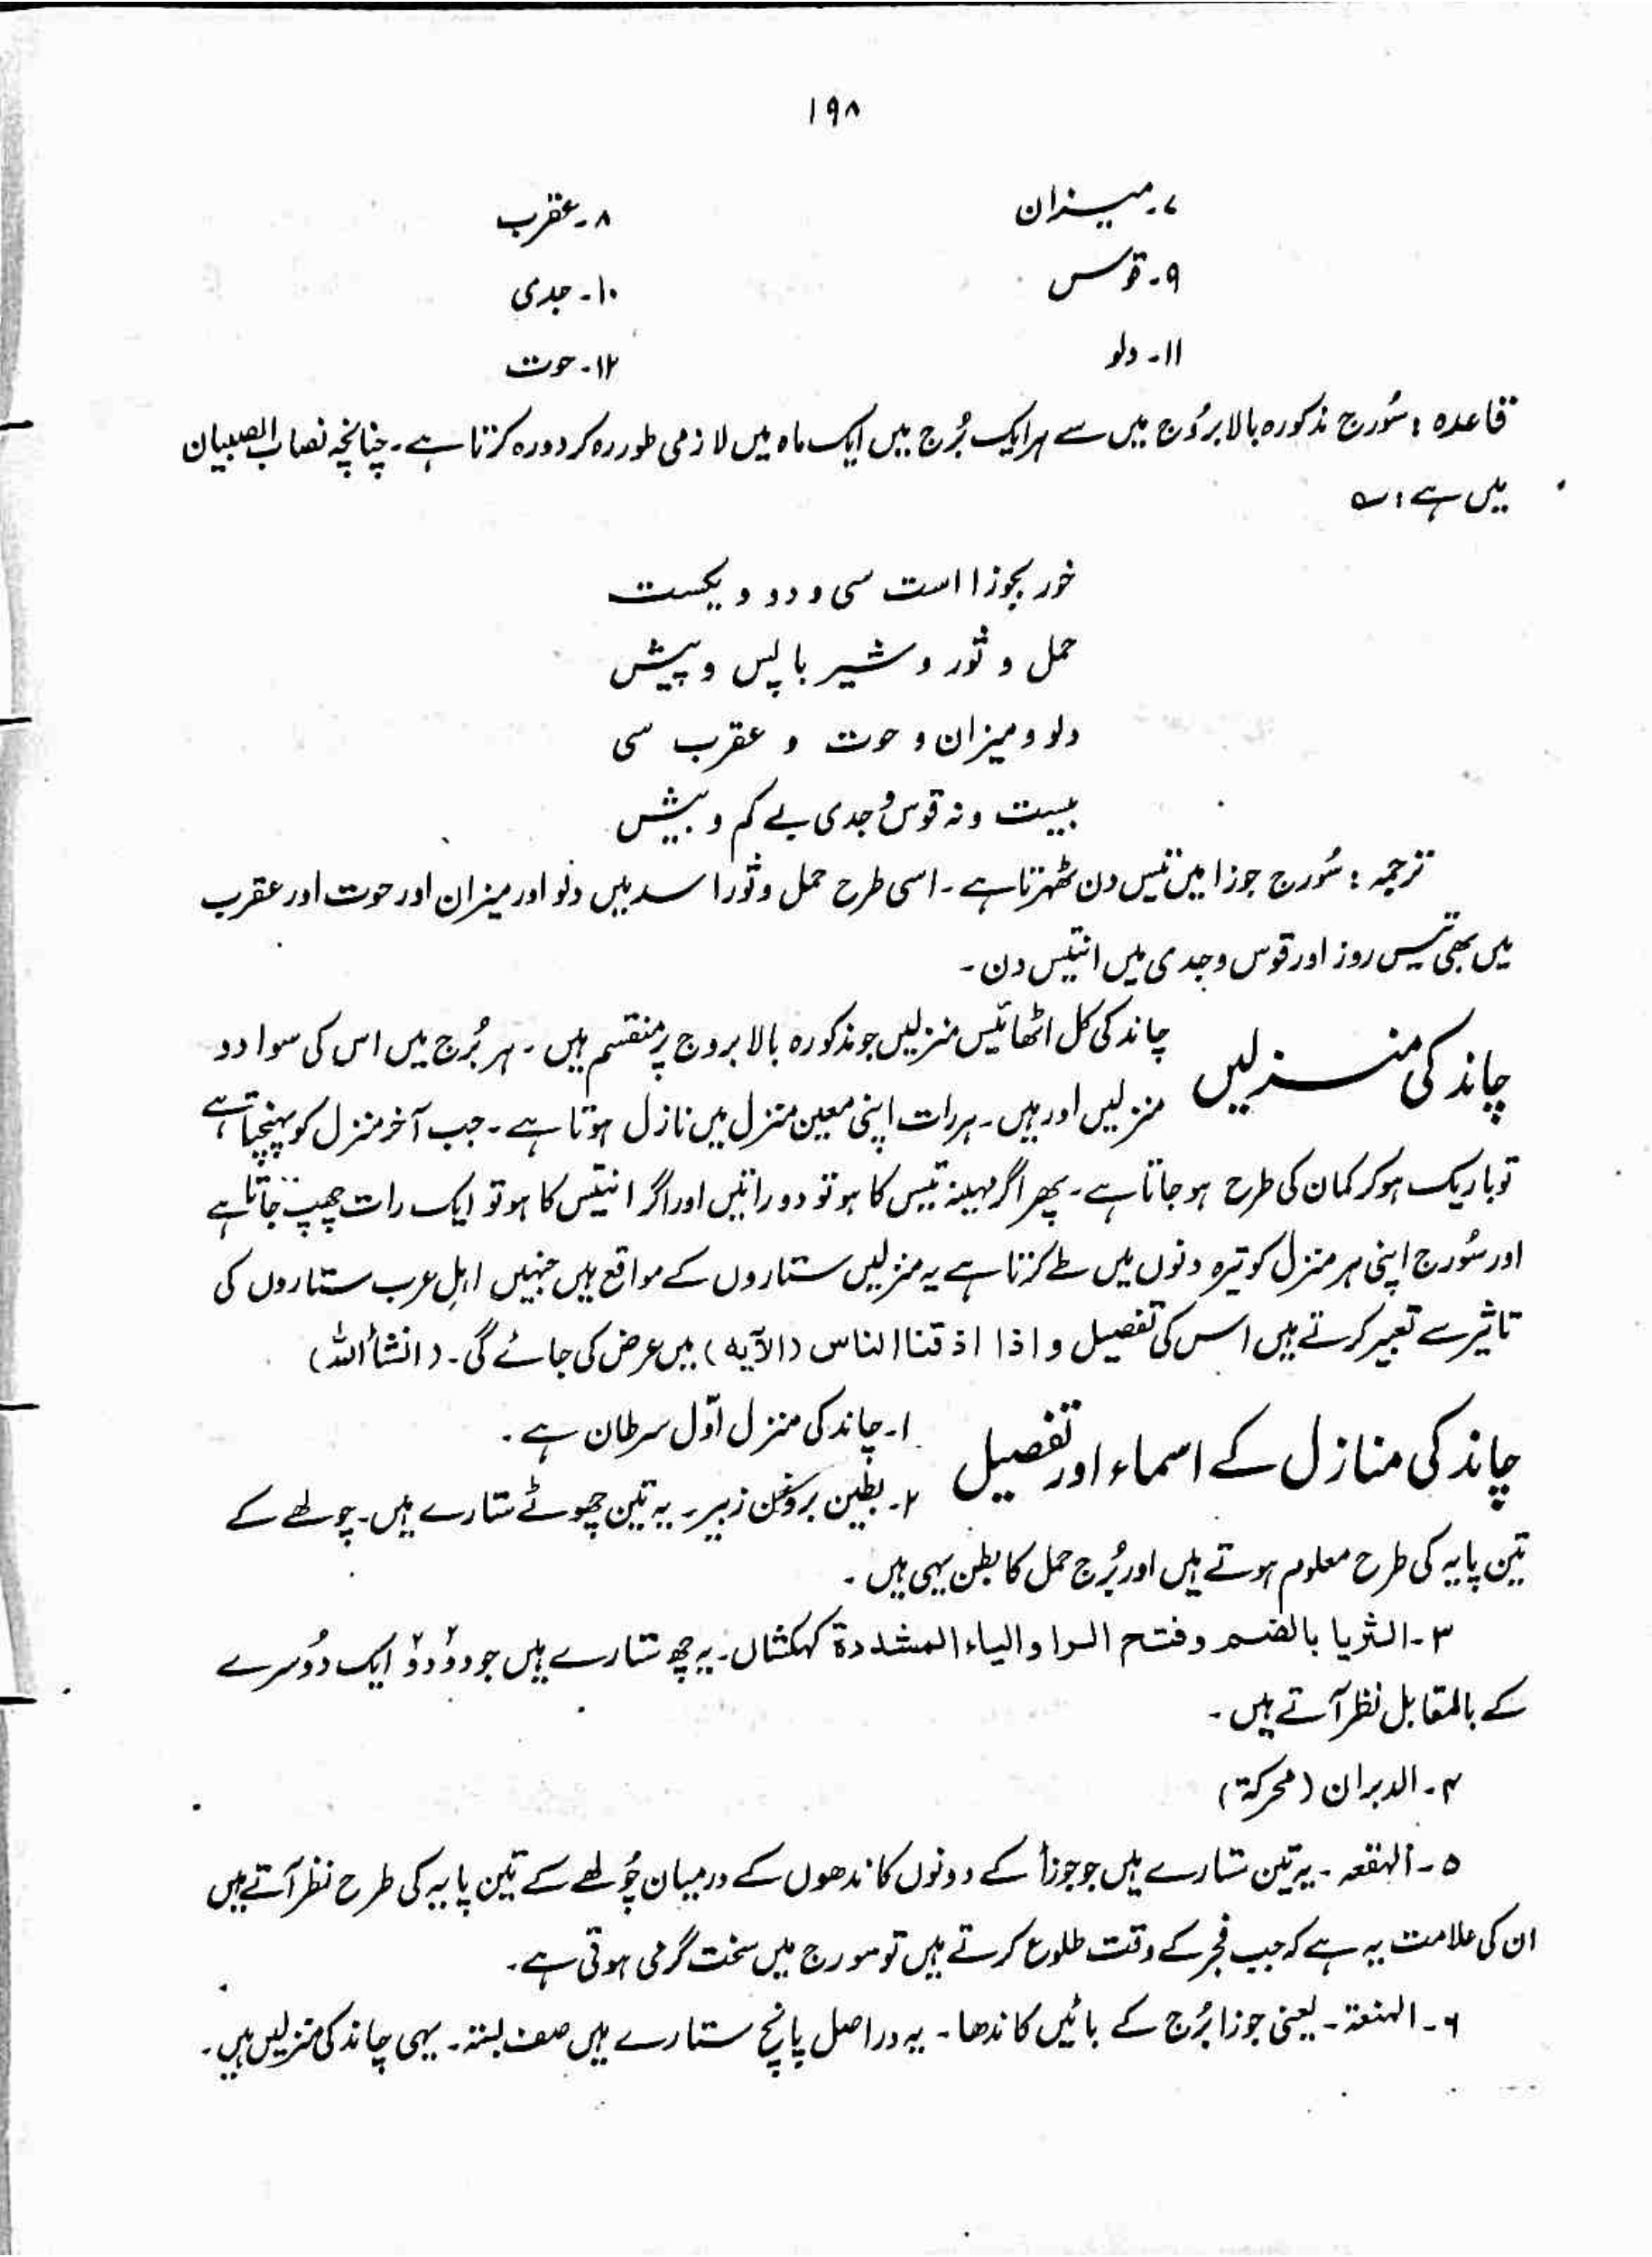 ۱۹۸
۷۔ میزان ۸۔ عقرب
۹۔ قوس ۱۰۔ جدی
۱۱۔ دلو ۱۲۔ حوت
قاعدہ : سُورج مذکورہ بالا بروُج میں سے ہر ایک بُرج میں ایک ماہ میں لازمی طور رہ کر دورہ کرتا ہے۔ چنانچہ نصاب الصبیان
میں ہے : ؎
خور بجوزا است سی و دو و یکست
حمل و ثور و شیر با پس و پیش
دلو و میزان و حوت و عقرب سی
بیست و نہ قوس و جدی بے کم و بیش
ترجمہ : سُورج جوزا میں تیس دن ٹھہرتا ہے۔ اسی طرح حمل و ثور اسد میں دلو اور میزان اور حوت اور عقرب
میں بھی تیس روز اور قوس و جدی میں انتیس دن۔
چاند کی منزلیں چاند کی کل اٹھائیس منزلیں جو مذکورہ بالا بروج پر منقسم ہیں۔ ہر بُرج میں اس کی سوا دو
منزلیں اور ہیں۔ ہر رات اپنی معین منزل میں نازل ہوتا ہے۔ جب آخر منزل کو پہنچتا ہے
تو باریک ہو کر کمان کی طرح ہو جاتا ہے۔ پھر اگر مہینہ تیس کا ہو تو دو راتیں اور اگر انتیس کا ہو تو ایک رات چھپ جاتا ہے
اور سُورج اپنی ہر منزل کو تیرہ دنوں میں طے کرتا ہے یہ منزلیں ستاروں کے مواقع ہیں جنہیں اہلِ عرب ستاروں کی
تاثیر سے تعبیر کرتے ہیں اس کی تفصیل و اذا اذقنا الناس (الآیہ) میں عرض کی جائے گی۔ (انشأ اللہ)
چاند کی منازل کے اسماء اور تفصیل ۱۔ چاند کی منزل اوّل سرطان ہے۔
۲۔ بطین بروزن زبیر۔ یہ تین چھوٹے ستارے ہیں۔ چولھے کے
تین پایہ کی طرح معلوم ہوتے ہیں اور بُرج حمل کا بطن یہی ہیں۔
۳۔ الثریا بالضم و فتح الرا و الیاء المشددۃ کہکشاں۔ یہ چھ ستارے ہیں جو دو دو ایک دُوسرے
کے بالمقابل نظر آتے ہیں۔
۴۔ الدبران (محرکۃ)
۵۔ الہقعہ۔ یہ تین ستارے ہیں جو جوزأ کے دونوں کاندھوں کے درمیان چُولھے کے تین پایہ کی طرح نظر آتے ہیں
ان کی علامت یہ ہے کہ جب فجر کے وقت طلوع کرتے ہیں تو سورج میں سخت گرمی ہوتی ہے۔
۶۔ الہنعۃ۔ یعنی جوزا بُرج کے بائیں کاندھا۔ یہ دراصل پانچ ستارے ہیں صف بستہ۔ یہی چاند کی منزلیں ہیں۔